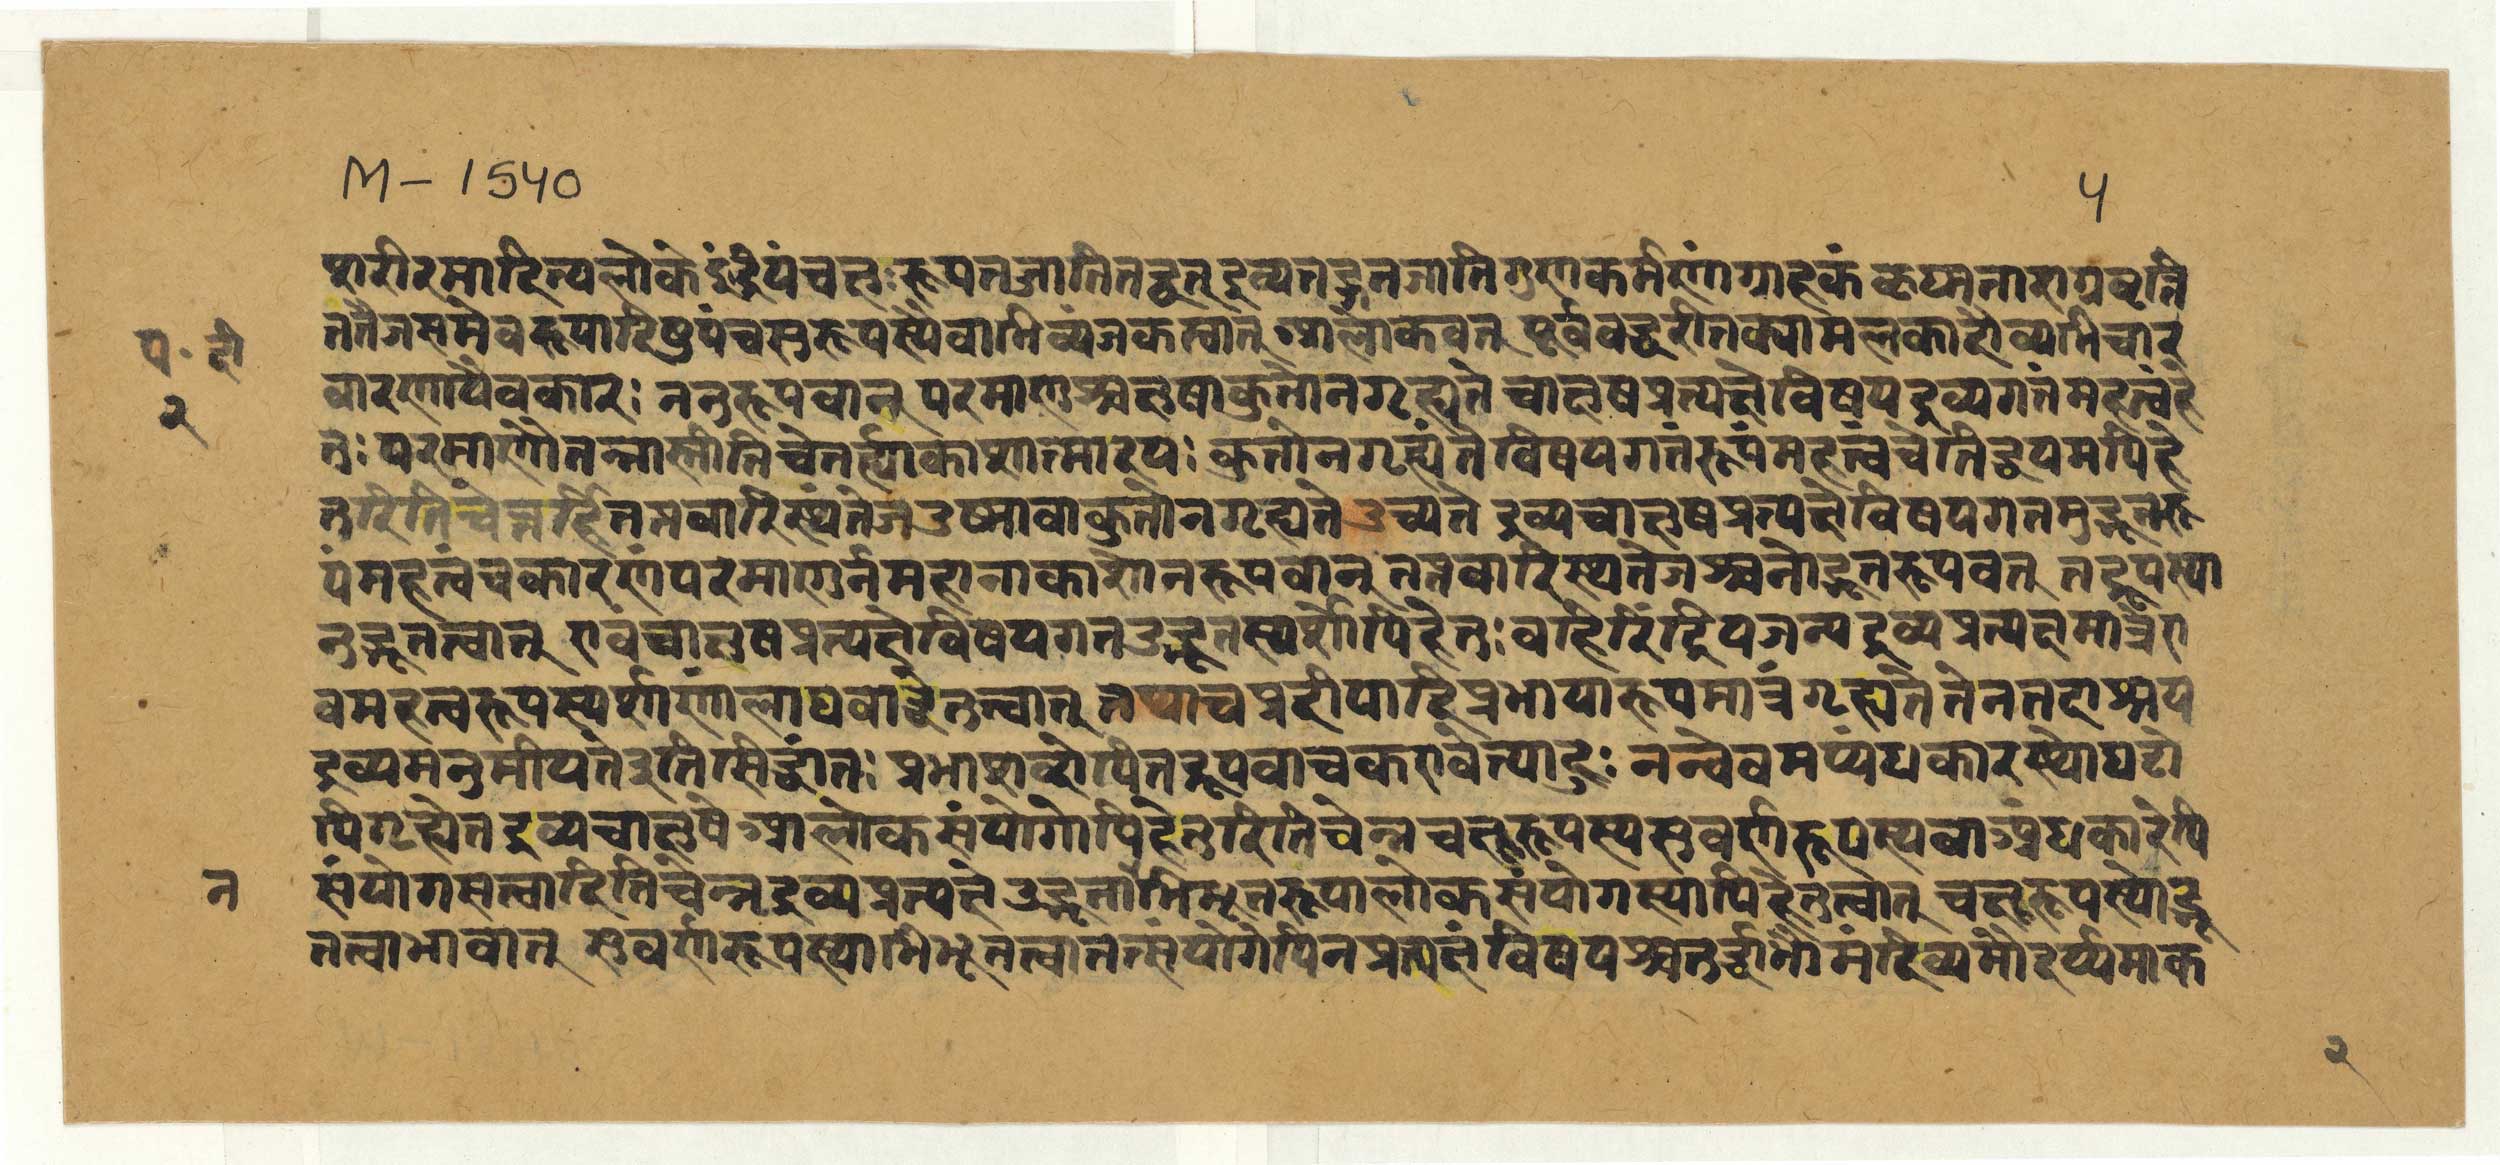 M-1540
५
शरीरमादित्यलोके इंद्रियंचक्षुः रूपतज्जातितद्वत् द्रव्यतद्गतजातिगुणकर्मणां ग्राहकं कृष्णताराग्रवृत्ति
तत्तैजसमेव रूपादिषुपंचसुरूपस्यैवाभिव्यंजकत्वात् आलोकवत् पूर्ववद्धरीतक्यामलकादौव्यभिचार
प॰ दी
वारणायैवकारः ननुरूपवान् परमाणुश्चक्षुषाकुतोनगृह्यते चाक्षुषप्रत्यक्षेविषयद्रव्यगतंमहत्वंहे
२
तुः परमाणौतन्नास्तीतिचेत्तर्ह्याकाशात्मादयः कुतोनगृह्यंते विषयगतंरूपंमहत्त्वंचेतिद्वयमपिहे
तुरितिचेत्तर्हितप्तवारिस्थंतेजउष्मावाकुतोनगृह्यते उच्यते द्रव्यचाक्षुषप्रत्यक्षेविषयगतमुद्भूतरू
पंमहत्वंचकारणंपरमाणुर्नमहानाकाशोनरूपवान् तप्तवारिस्थतेजश्चनोद्भूतरूपवत् तद्रूपस्या
नुद्भूतत्वात् एवंचाक्षुषप्रत्यक्षेविषयगतउद्भूतस्पर्शोपिहेतुः बहिरिंद्रियजन्यद्रव्यप्रत्यक्षमात्रेए
वमहत्वरूपस्पर्शाणांलाघवाद्धेतुत्वात् तथाचप्रदीपादिप्रभायारूपमात्रंगृह्यते तेनतदाश्रय
द्रव्यमनुमीयतेइतिसिद्धांतः प्रभाशब्दोपितद्रूपवाचकएवेत्याहुः नन्वेवमप्यंधकारस्थोघटो
पिगृह्येत द्रव्यचाक्षुषे आलोकसंयोगोपिहेतुरितिचेन्न चक्षूरूपस्यसुवर्णरूपस्यवाअंधकारेपि
न
संयोगसत्वादितिचेन्न द्रव्यप्रत्यक्षे उद्भूतानभिभूतरूपालोकसंयोगस्यापिहेतुत्वात् चक्षूरूपस्योद्भू
तत्वाभावात् सुवर्णरूपस्याभिभूतत्वात्तत्संयोगेपिनप्रत्यक्षं विषयश्चतुर्द्धाभौमंदिव्यमौदर्य्यमाक
२